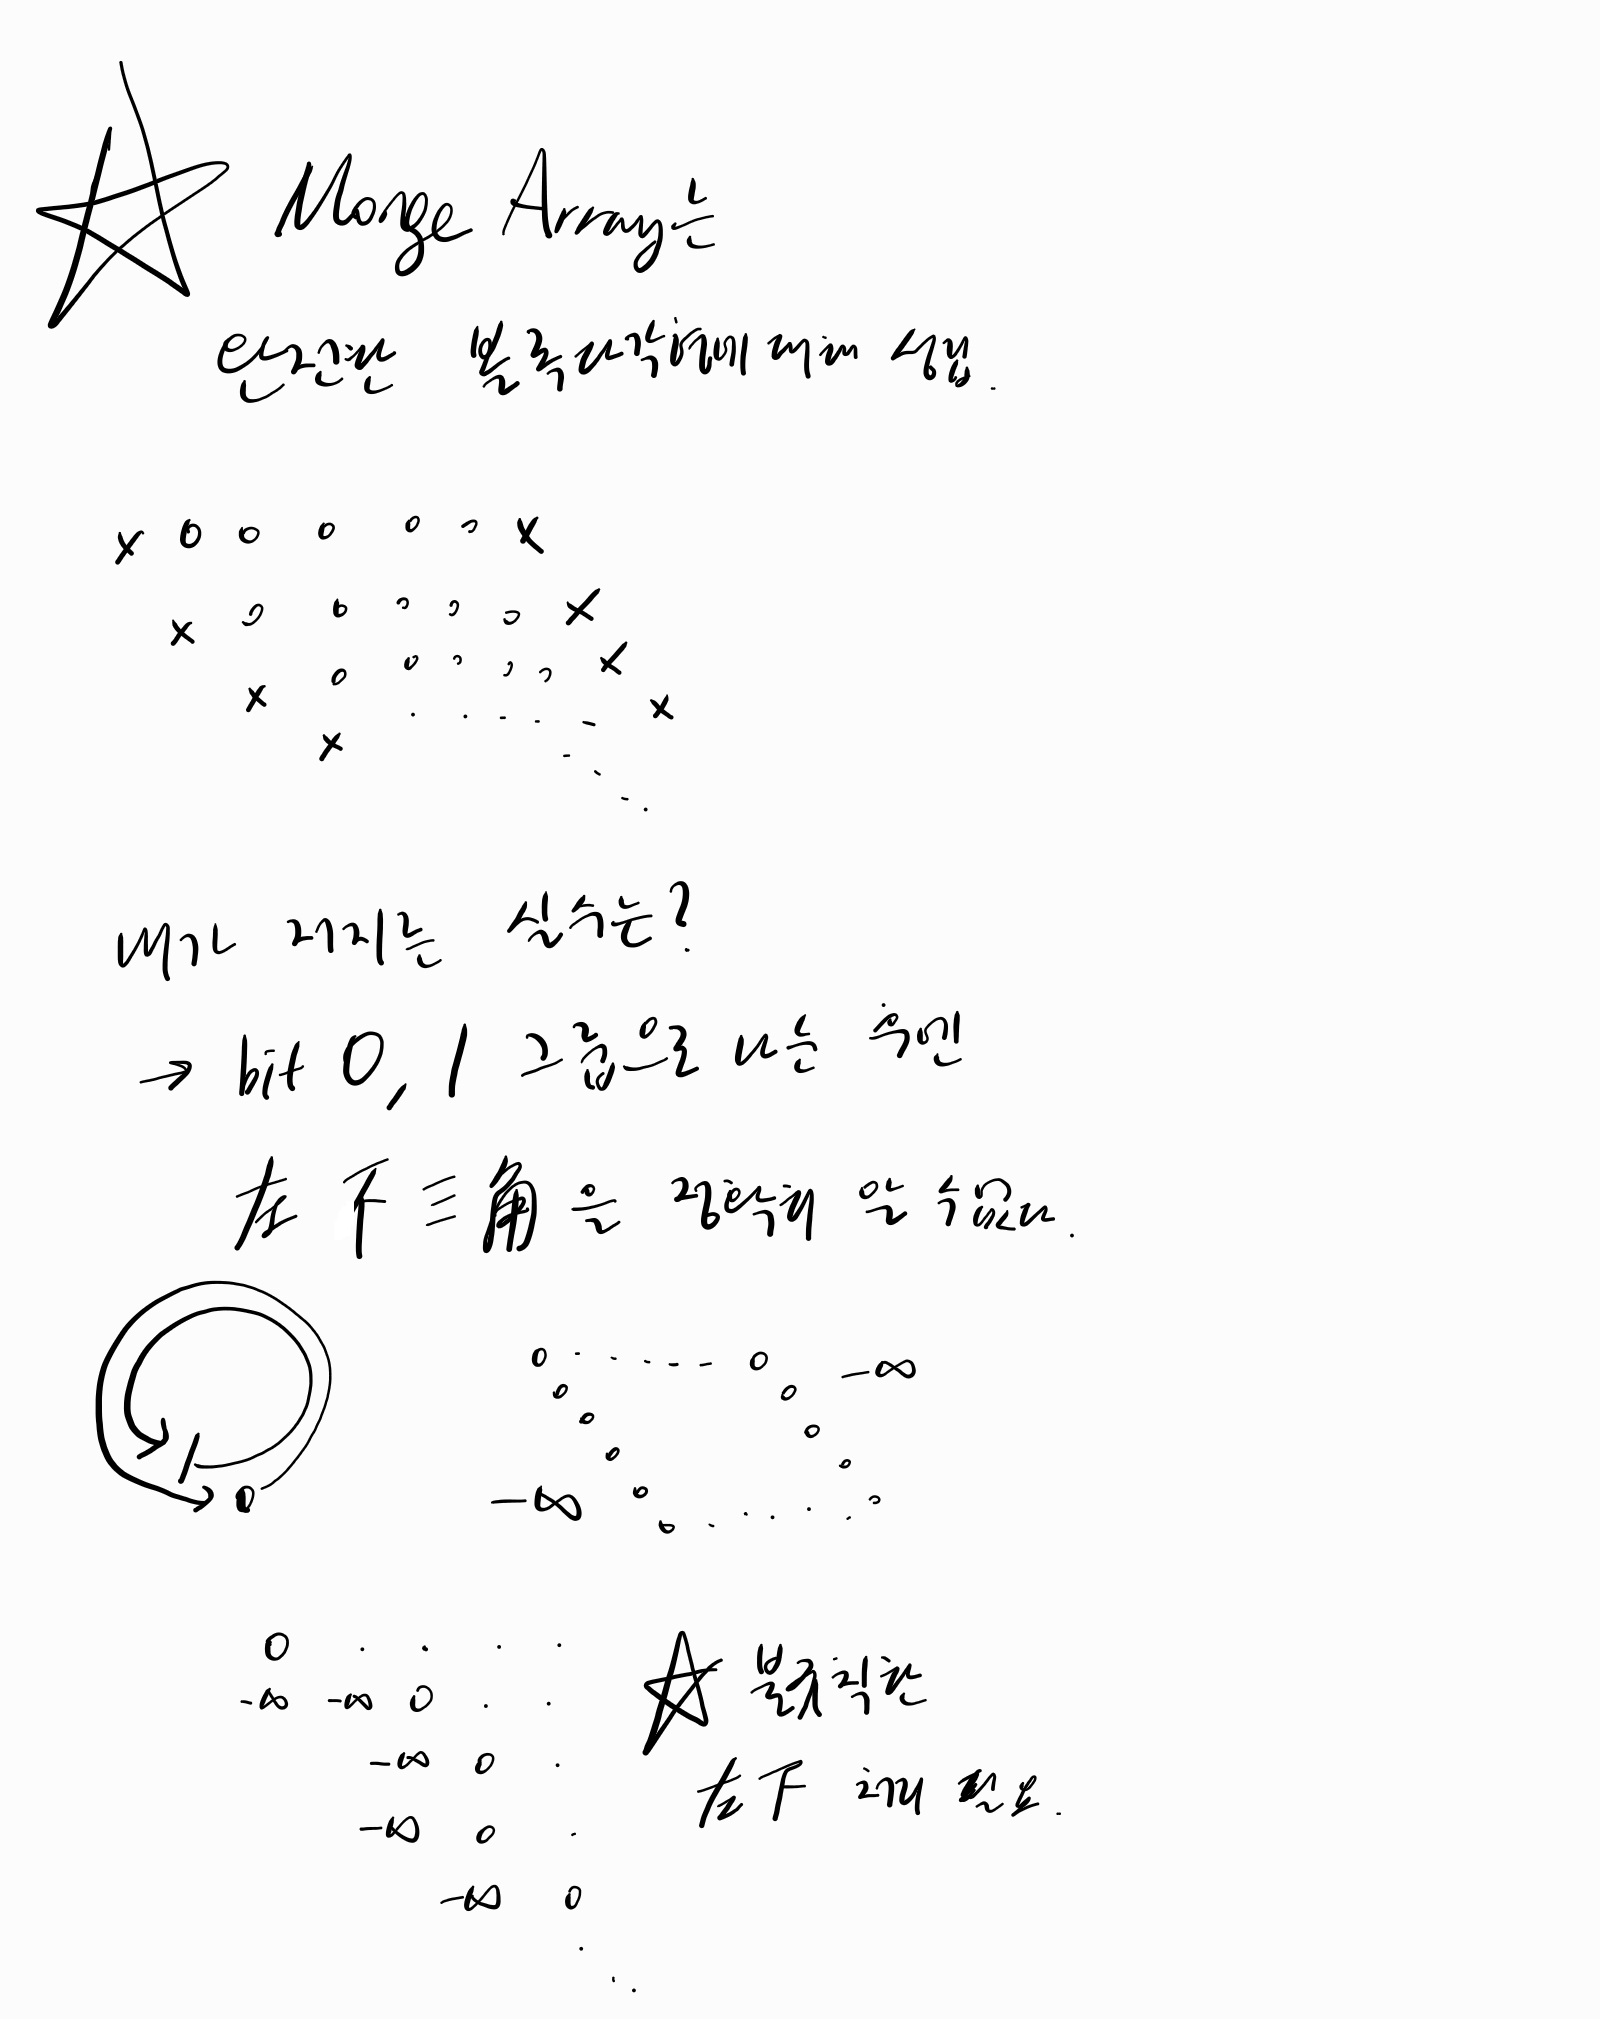 Monge Array는
완전한 볼록다각형에 대해 성립.
x o o o o o x
x o o o o o x
x o o o o o x
x . . - - - x
내가 저지는 실수는?
→ bit 0, 1 그룹으로 나눈 후엔
左下三角은 정확히 알 수 없다.
o . . - - - o -∞
-∞
1
0
o . . . .
-∞ -∞ o . .
-∞ o .
-∞ o .
-∞ o
불규칙한
左下 처리 필요.